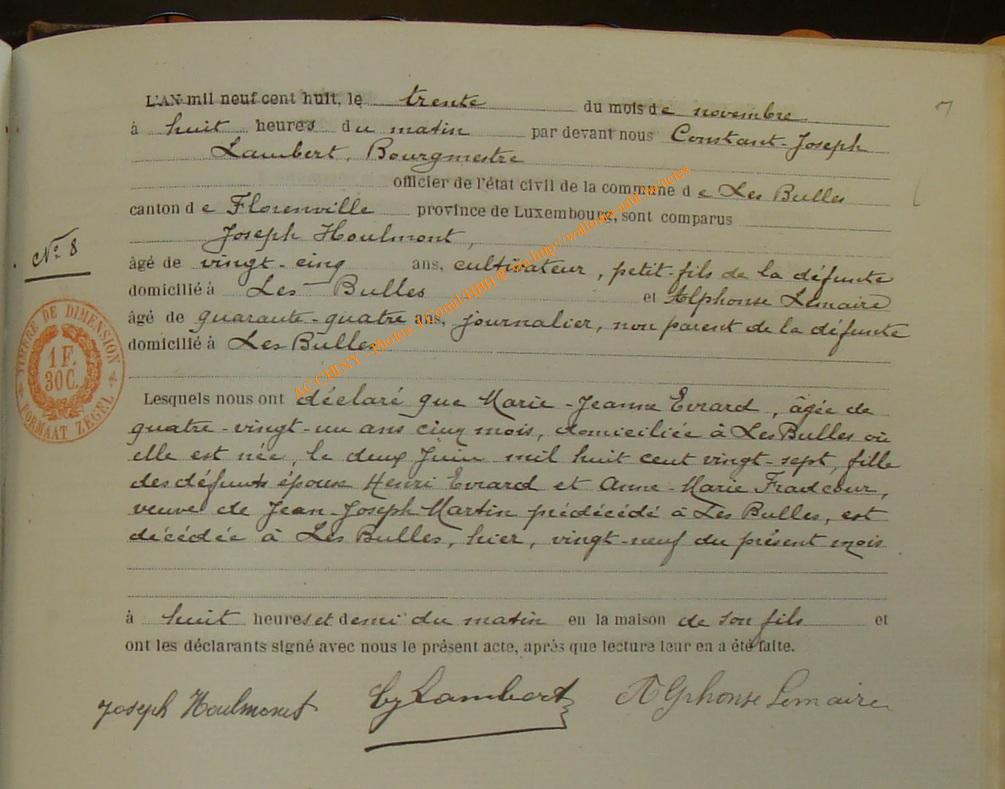 L'AN mil neuf cent huit, le trente du mois de novembre
à huit heures du matin par devant nous Constant-Joseph
Lambert, Bourgmestre
officier de l'état civil de la commune de Les Bulles
canton de Florenville province de Luxembourg, sont comparus
Joseph Houlmont,
N° 8
âgé de vingt-cinq ans, cultivateur, petit-fils de la défunte
domicilié à Les Bulles et Alphonse Lemaire
âgé de quarante-quatre ans, journalier, non parent de la défunte
domicilié à Les Bulles
TIMBRE DE DIMENSION
1 F.
30 C.
FORMAAT ZEGEL
Lesquels nous ont déclaré que Marie-Jeanne Evrard, âgée de
quatre-vingt-un ans cinq mois, domiciliée à Les Bulles où
elle est née, le deux Juin mil huit cent vingt-sept, fille
des défunts époux Henri Evrard et Anne-Marie Fradcour,
veuve de Jean-Joseph Martin prédécédé à Les Bulles, est
décédée à Les Bulles, hier, vingt-neuf du présent mois
à huit heures et demi du matin en la maison de son fils et
ont les déclarants signé avec nous le présent acte, après que lecture leur en a été faite.
Joseph Houlmont Lambert Alphonse Lemaire